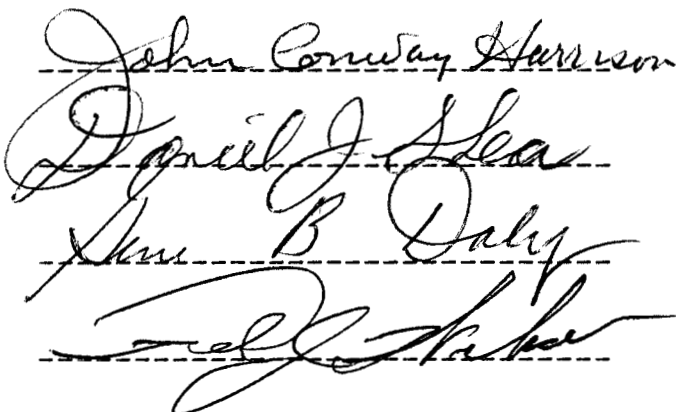 John Conway Harrison
Daniel J. Shea
Gene B Daly
Fred J.